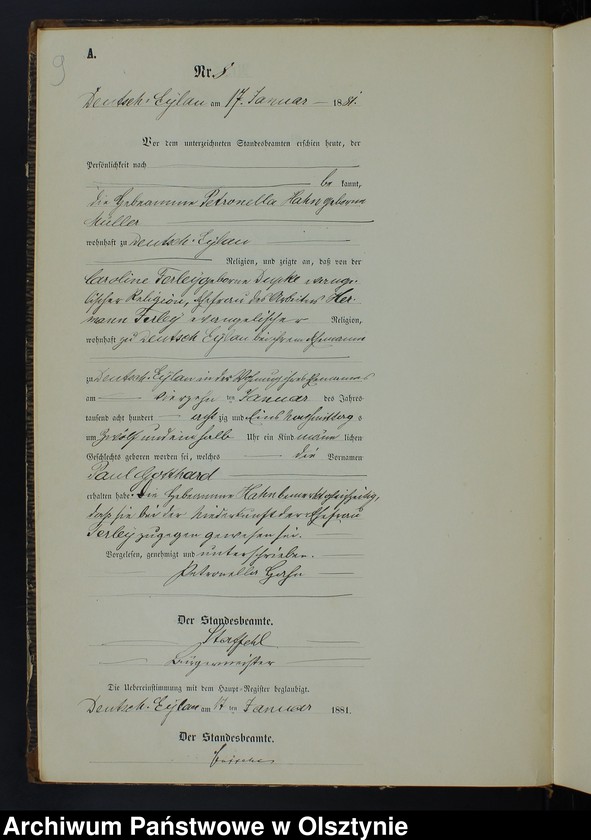 9
A.
Nr. 8
Deutsch-Eylau am 17. Januar 1881.
Vor dem unterzeichneten Standesbeamten erschien heute, der
Persönlichkeit nach
be kannt,
die Hebeamme Petronella Hahn geborne
Müller
wohnhaft zu Deutsch-Eylau
Religion, und zeigte an, daß von der
Caroline Ferley geborne evange-
lischer Religion, Ehefrau des Arbeiters Her-
mann Ferley evangelischer Religion,
wohnhaft zu Deutsch Eylau bei ihrem Ehemanne
zu Deutsch-Eylau in der Wohnung ihres Ehemannes
am vierzehn ten Januar des Jahres
tausend acht hundert acht zig und Eins Nachmittag s
um Zwölf und ein halb Uhr ein Kind männ lichen
Geschlechts geboren worden sei, welches die Vornamen
Paul Gotthard
erhalten habe. Die Hebeamme Hahn bemerkt gleichzeitig,
daß sie bei der Niederkunft der Ehefrau
Ferley zugegen gewesen sei.
Vorgelesen, genehmigt und unterschrieben.
Petronella Hahn
Der Standesbeamte.
Staffehl
Bürgermeister
Die Uebereinstimmung mit dem Haupt-Register beglaubigt.
Deutsch-Eylau am 17 ten Januar 1881.
Der Standesbeamte.
Archiwum Państwowe w Olsztynie